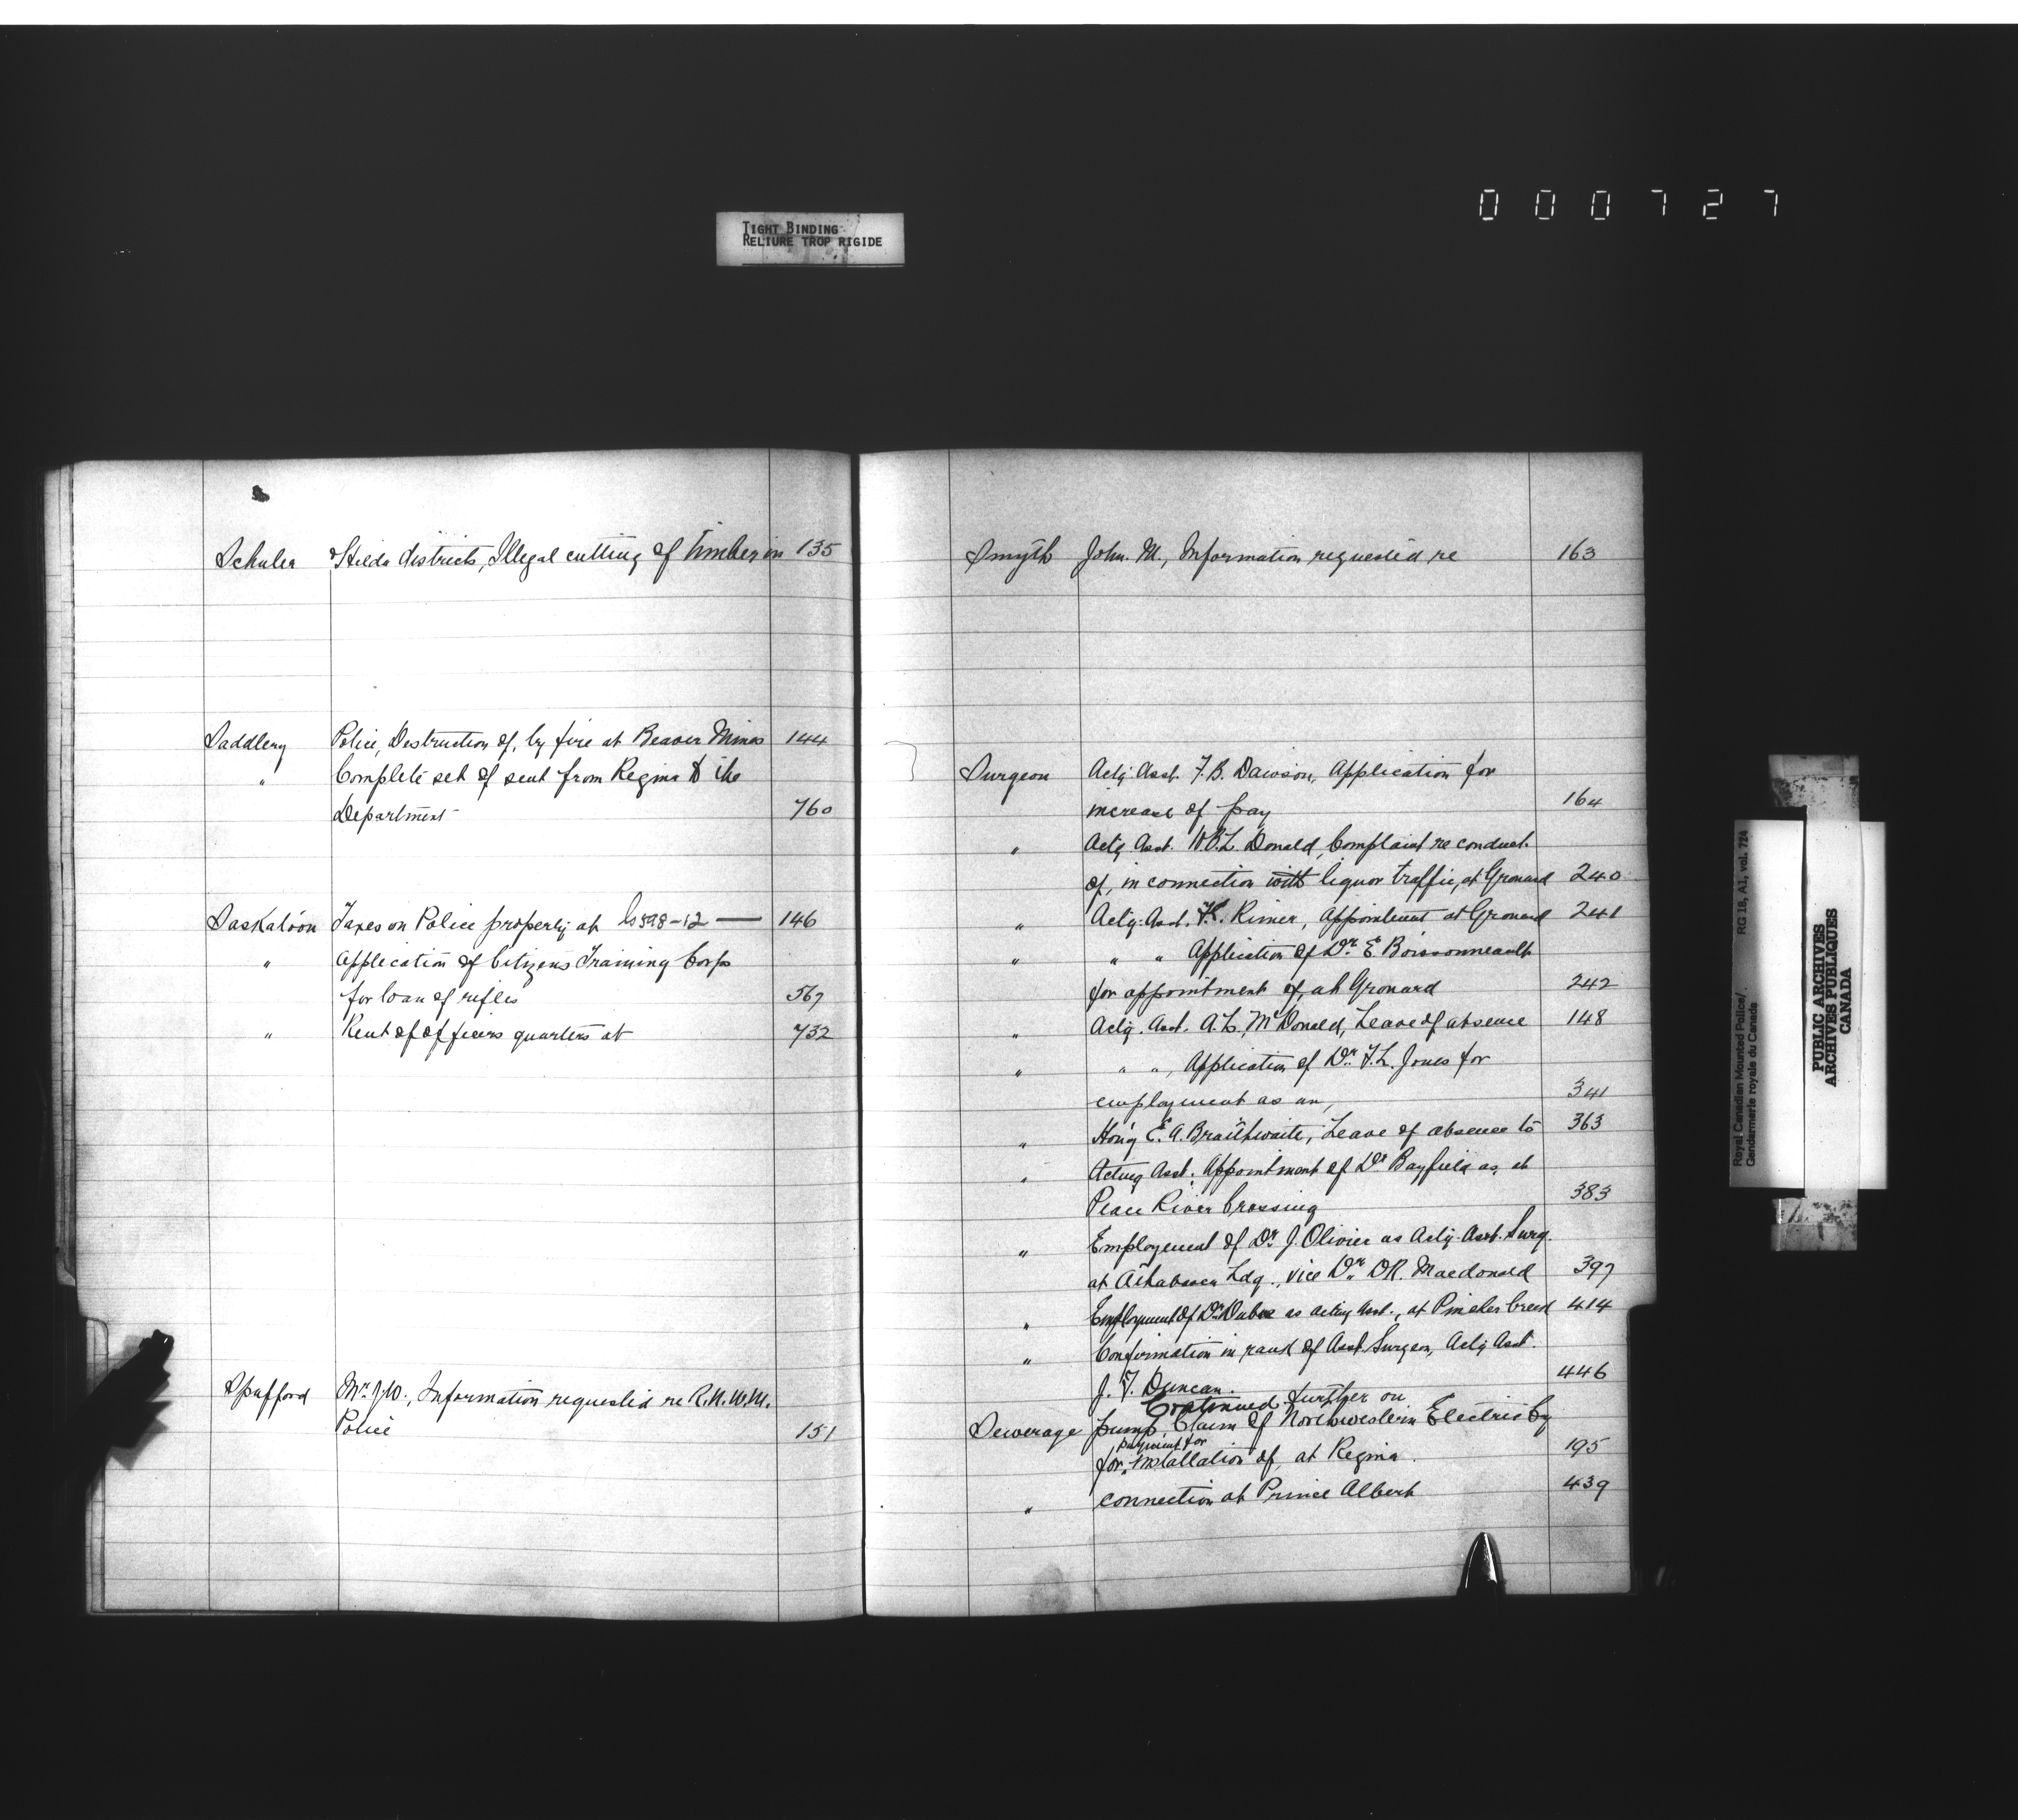 000727
TIGHT BINDING
RELIURE TROP RIGIDE
Schuler & Hilda districts, Illegal cutting of timber in 135
Saddlery Police, Destruction of, by fire at Beaver Mines 144
" Complete set of sent from Regina to the
Department 760
Saskatoon Taxes on Police property at 598-12 — 146
" Application of Citizens Training Corps
for loan of rifles 567
" Rent of officers quarters at 732
Spufford Mr. J.W., Information requested re R.N.W.M.
Police 151
Smyth John. M., Information requested re 163
Surgeon Actg. Asst. F.B. Dawson, Application for
increase of pay 164
" Actg. Asst. W.B.L. Donald, Complaint re conduct
of, in connection with liquor traffic, at Grouard 240
" Actg. Asst. Rimer, appointment at Grouard 241
" " " Application of Dr. E. Boissonneault
for appointment of, at Grouard 242
" Actg. Asst. A.L. McDonald, Leave of absence 148
" " ", Application of Dr. F.L. Jones for
employment as an, 341
" Hon'y E.A. Braithwaite, Leave of absence to 363
" Acting Asst. Appointment of Dr. Bayfield as, at
Peace River Crossing 383
" Employment of Dr. J. Olivier as Actg. Asst. Surg.
at Athabasca Ldg., vice Dr. D.R. Macdonald 397
" Employment of Dr. as acting Asst., at Pincher Creek 414
" Confirmation in rank of Asst. Surgeon, Actg Asst.
J. F. Duncan. 446
Continued further on
Sewerage pump, Claim of Northwestern Electric Coy
payment for
for installation of, at Regina. 195
" connection at Prince Albert 439
Royal Canadian Mounted Police/
Gendarmerie royale du Canada
RG 18, A1, vol. 724
PUBLIC ARCHIVES
ARCHIVES PUBLIQUES
CANADA